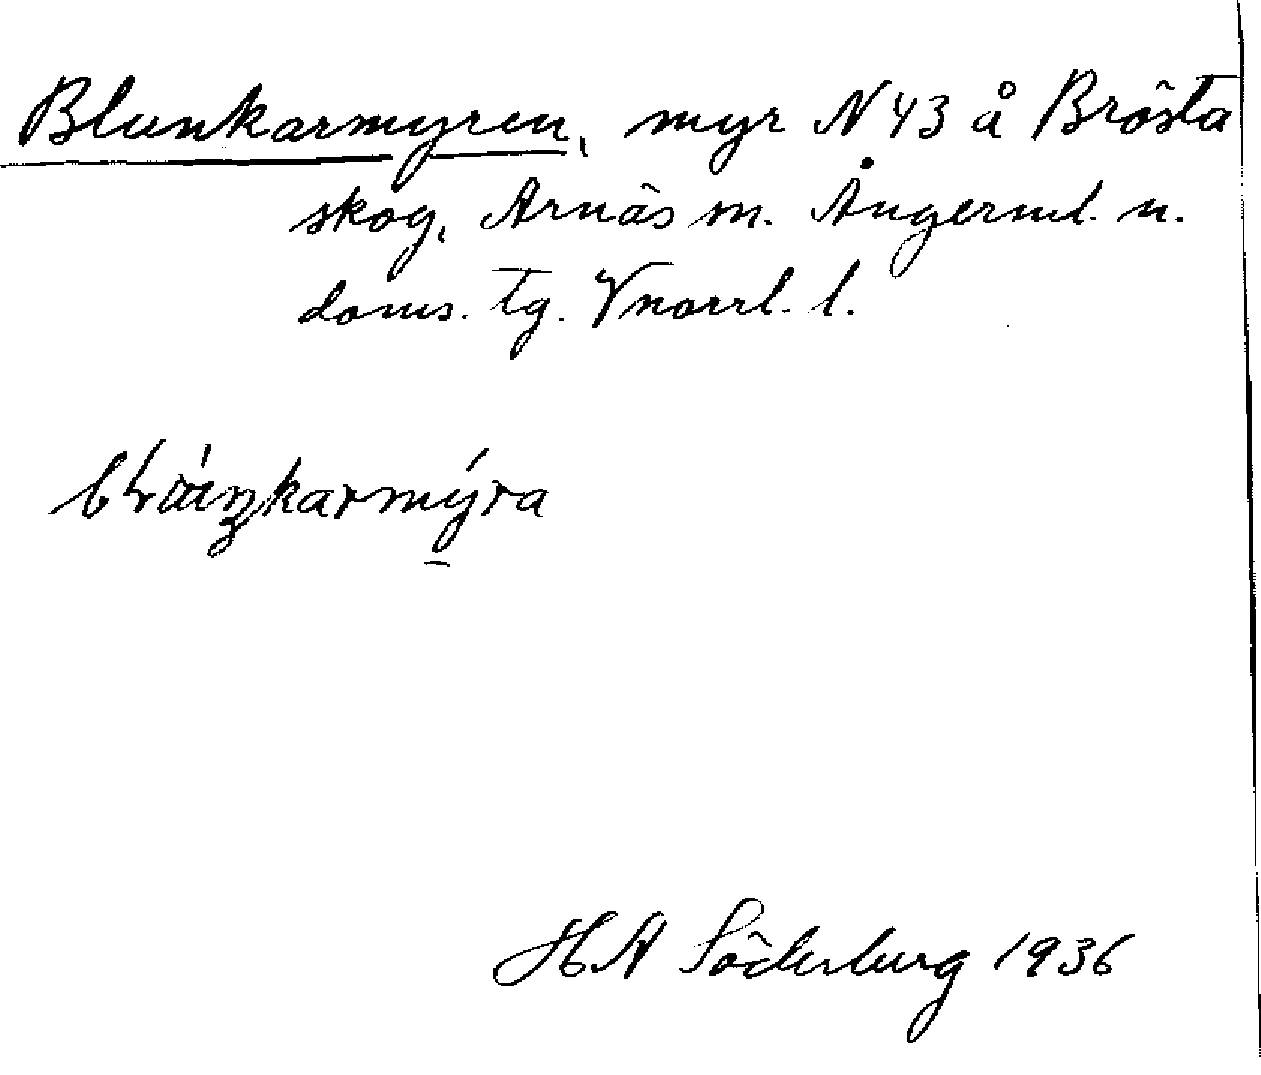 Blunkarmyren, myr N 43 å Brösta
skog, Arnäs sn. Ångerml. n.
doms. tg. Vnorrl. l.
H A Söderberg 1936